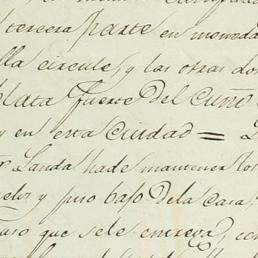 tercera parte en moneda
lla circule, y las otras do
plata fuerte del cuño
y en esta Ciudad =
Landa ha de mantener los
y piso bajo de la Casa
uso que se le